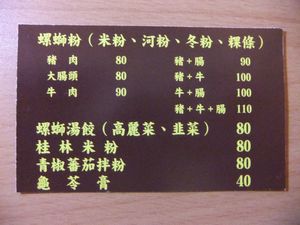 螺螄粉（米粉、河粉、冬粉、粿條）
豬 肉 80 豬+腸 90
大腸頭 80 豬+牛 100
牛 肉 90 牛+腸 100
豬+牛+腸 110
螺螄湯餃（高麗菜、韭菜） 80
桂林米粉 80
青椒蕃茄拌粉 80
龜苓膏 40